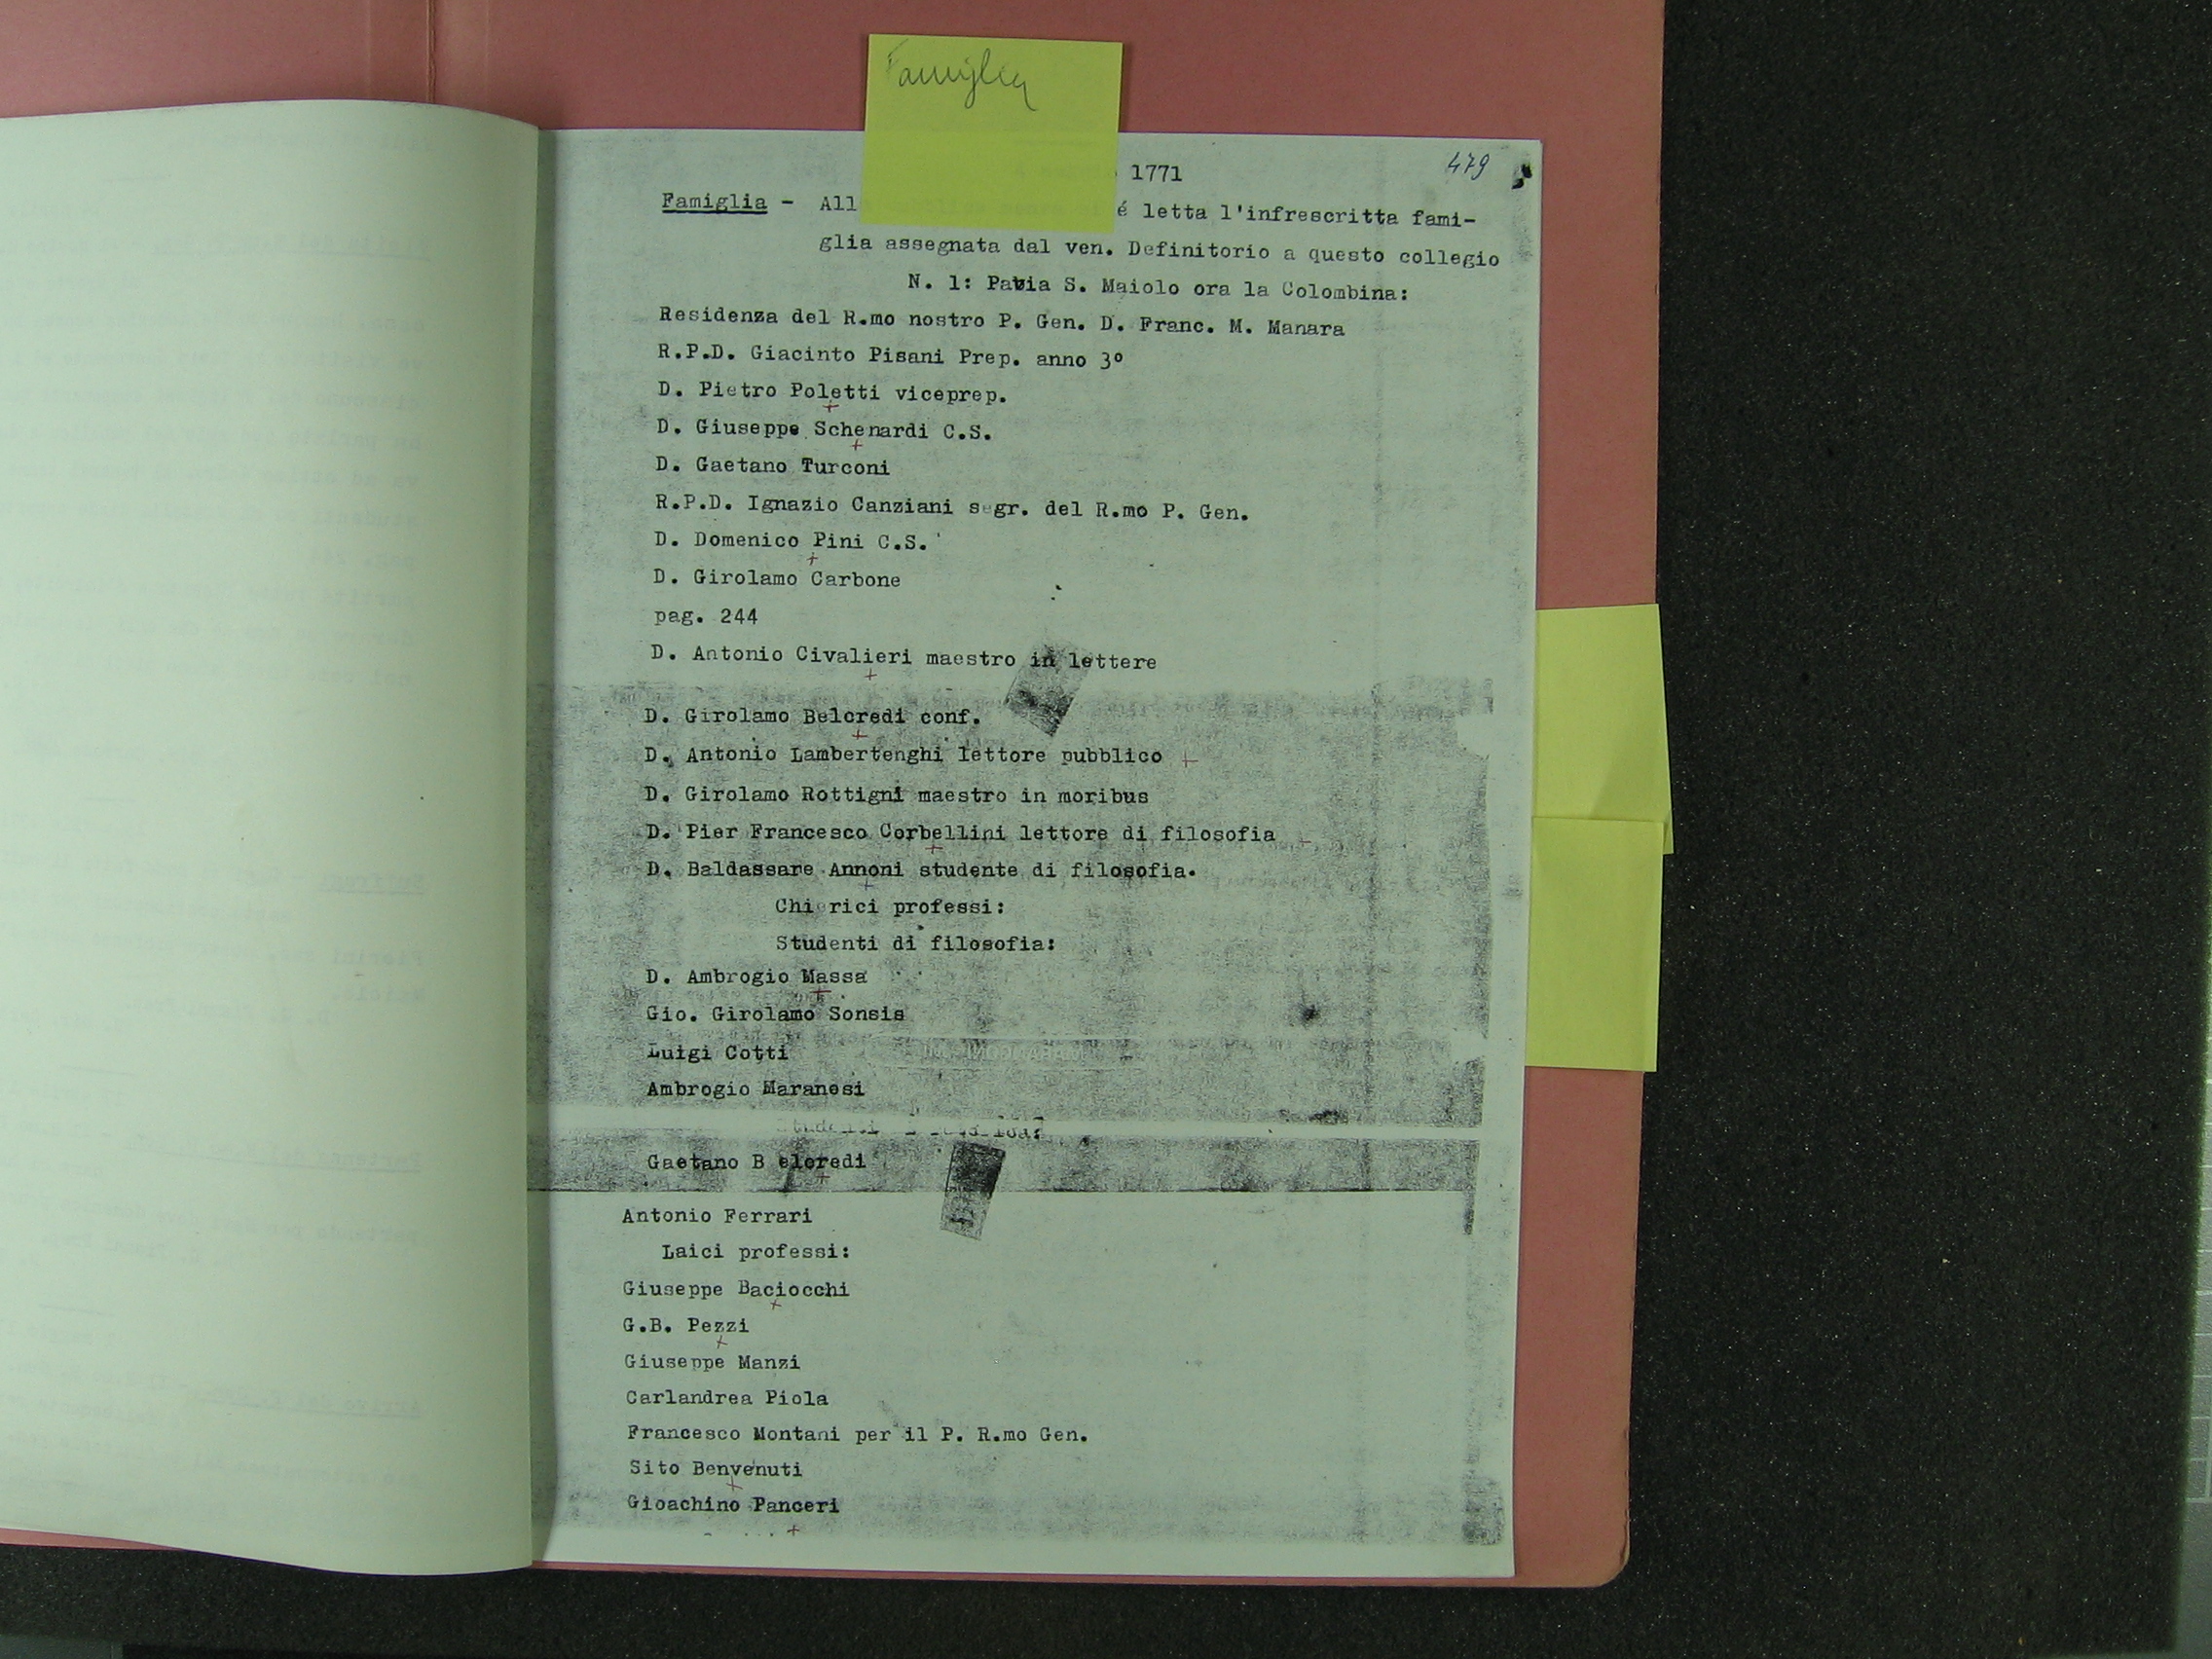 Famiglia
479
1771
Famiglia - All é letta l'infrescritta fami-
glia assegnata dal ven. Definitorio a questo collegio
N. 1: Pavia S. Maiolo ora la Colombina:
Residenza del R.mo nostro P. Gen. D. Franc. M. Manara
R.P.D. Giacinto Pisani Prep. anno 3º
D. Pietro Poletti viceprep.
D. Giuseppe Schenardi C.S.
D. Gaetano Turconi
R.P.D. Ignazio Canziani segr. del R.mo P. Gen.
D. Domenico Pini C.S.
D. Girolamo Carbone
pag. 244
D. Antonio Civalieri maestro in lettere
D. Girolamo Belcredi conf.
D. Antonio Lambertenghi lettore pubblico
D. Girolamo Rottigni maestro in moribus
D. Pier Francesco Corbellini lettore di filosofia
D. Baldassare Annoni studente di filosofia.
Chierici professi:
Studenti di filosofia:
D. Ambrogio Massa
Gio. Girolamo Sonsis
Luigi Cotti
Ambrogio Maranesi
Gaetano B elcredi
Antonio Ferrari
Laici professi:
Giuseppe Baciocchi
G.B. Pezzi
Giuseppe Manzi
Carlandrea Piola
Francesco Montani per il P. R.mo Gen.
Sito Benvenuti
Gioachino Panceri